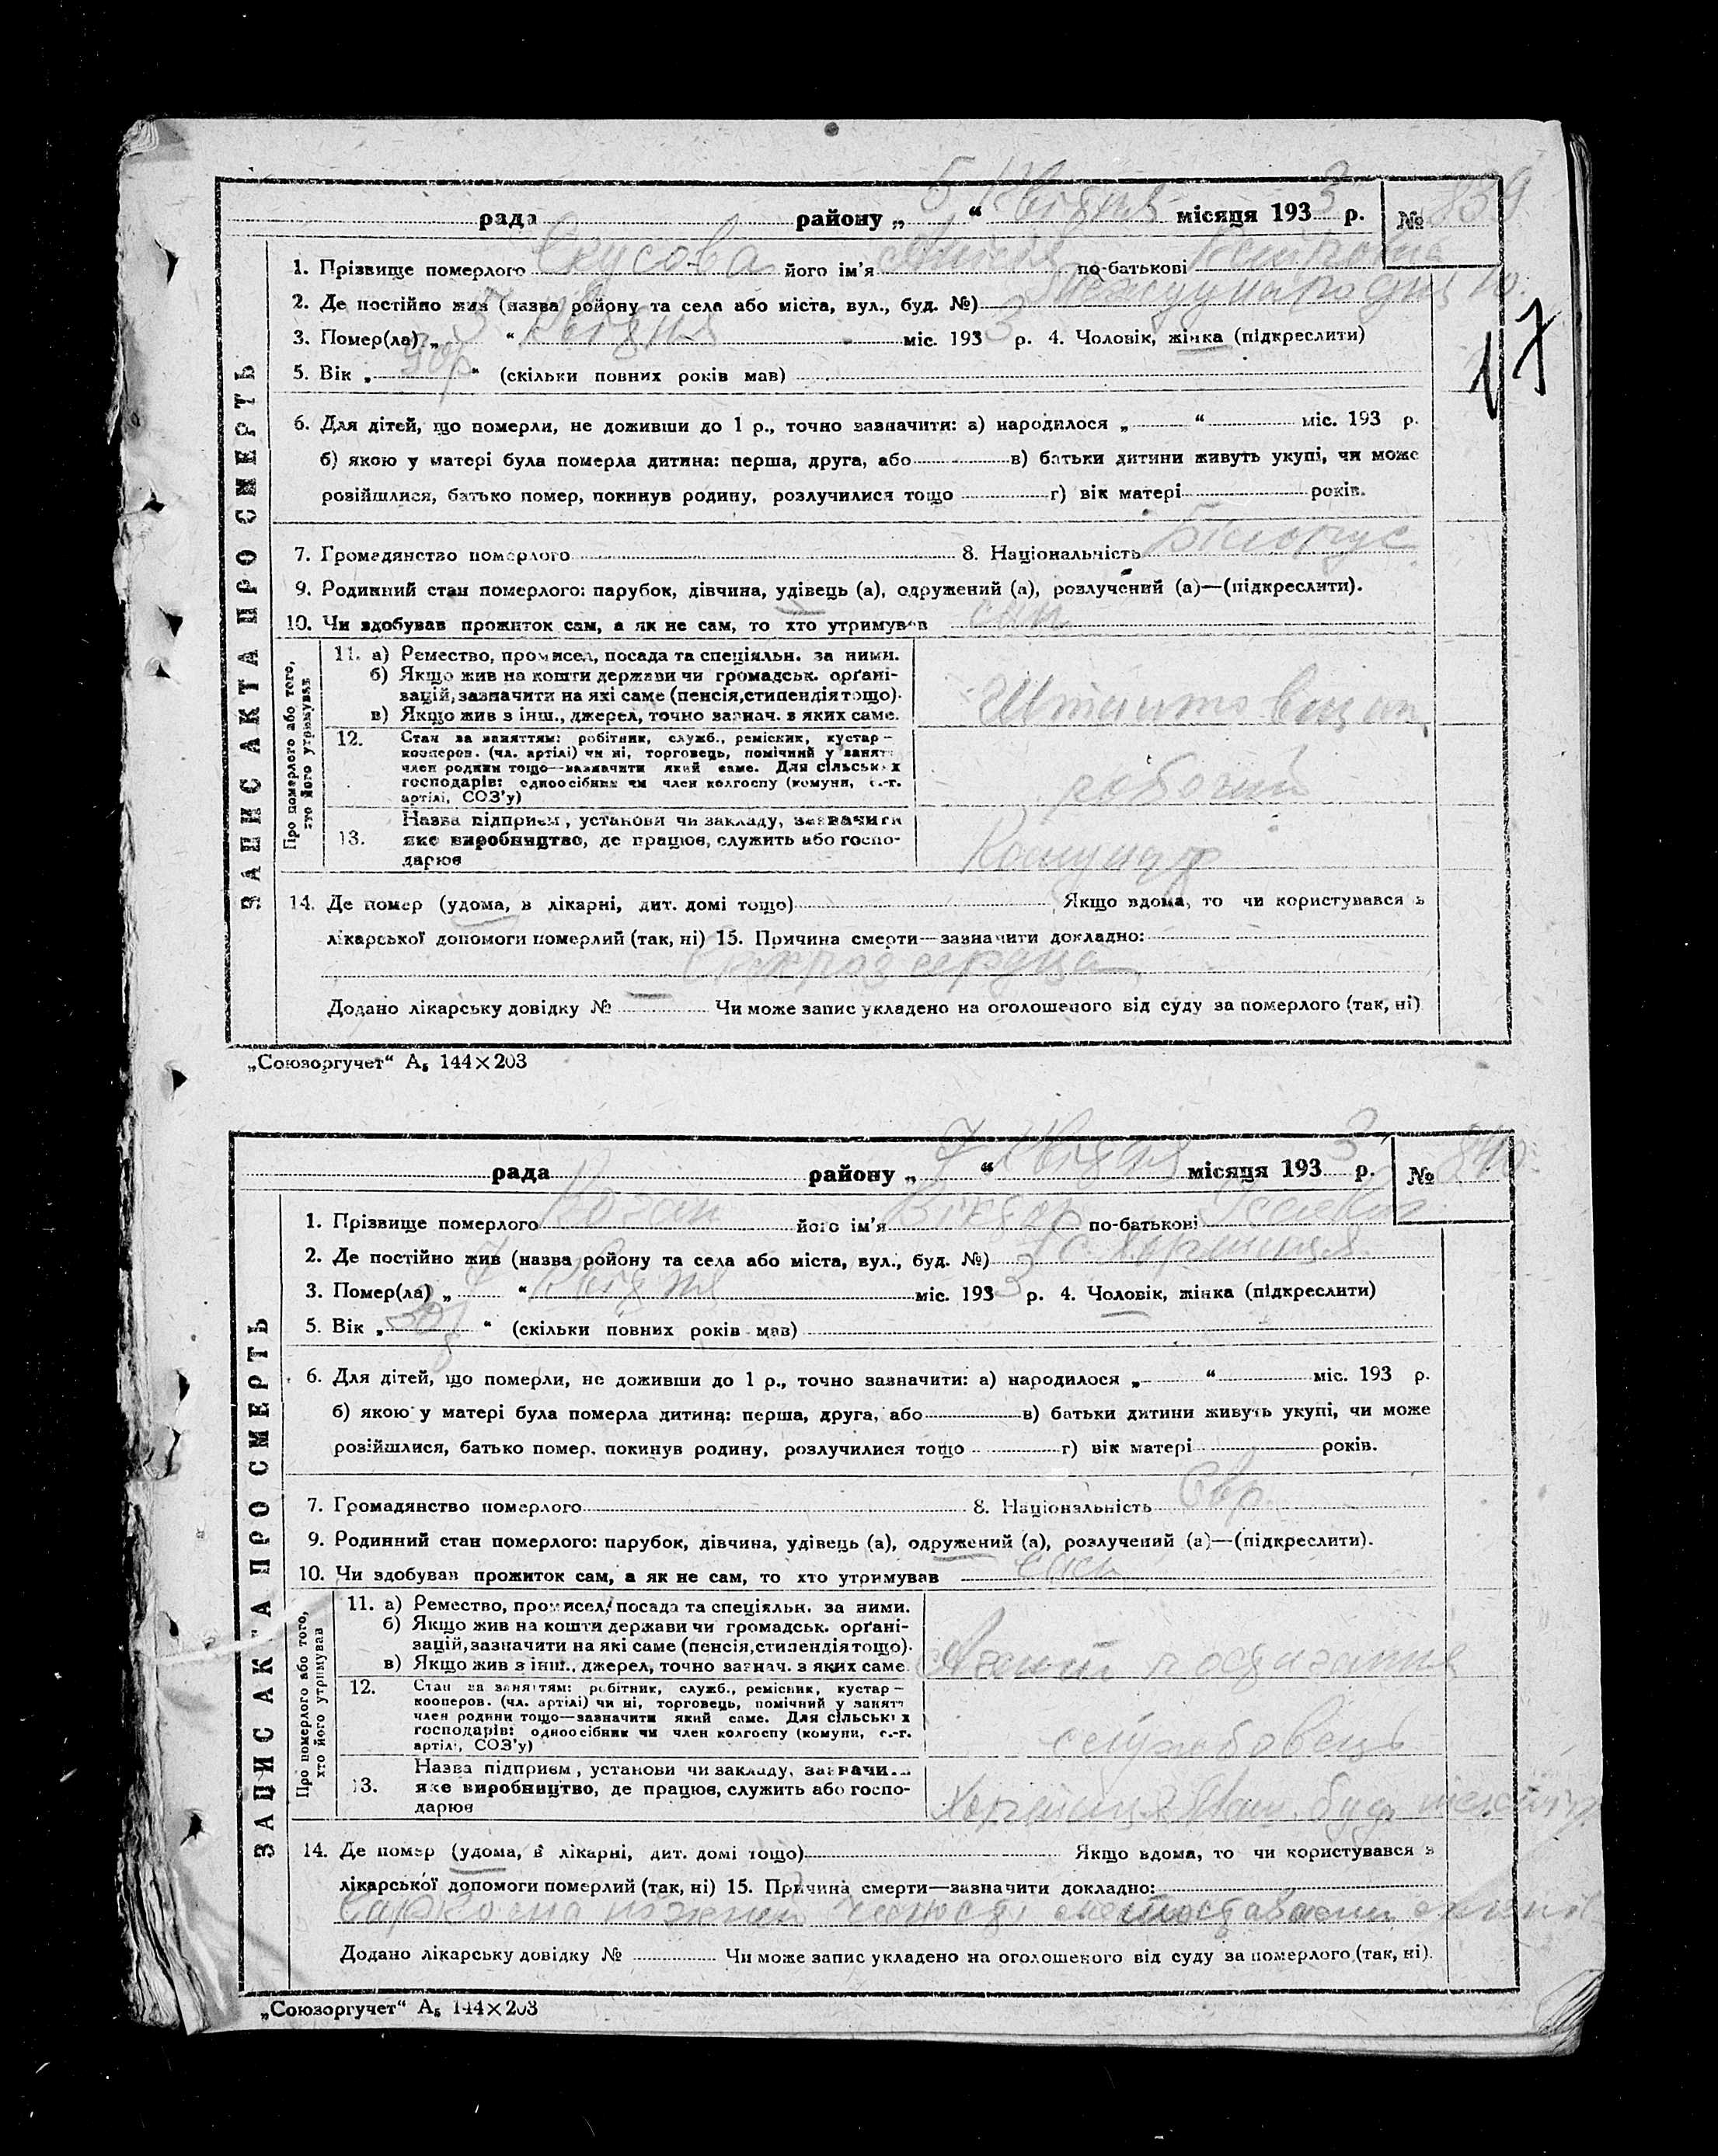 рада району „ 5 “ Квітня місяця 1933 р. № 839
1. Прізвище померлого Скусова його ім'я по-батькові
2. Де постійно жив (назва ройону та села або міста, вул., буд. №)
3. Помер(ла) „ 3 “ Квітня міс. 1933 р. 4. Чоловік, жінка (підкреслити)
5. Вік „ “ (скільки повних років мав)
6. Для дітей, що померли, не доживши до 1 р., точно зазначити: а) народилося „ “ міс. 193 р.
б) якою у матері була померла дитина: перша, друга, або в) батьки дитини живуть укупі, чи може
розійшлися, батько помер, покинув родину, розлучилися тощо г) вік матері років.
7. Громадянство померлого 8. Національність Білорус
9. Родинний стан померлого: парубок, дівчина, удівець (а), одружений (а), розлучений (а)—(підкреслити).
10. Чи здобував прожиток сам, а як не сам, то хто утримував син
ЗАПИС АКТА ПРО СМЕРТЬ
Про померлого або того,
хто його утримував
11. а) Ремество, промисел, посада та спеціяльн. за ними.
б) Якщо жив на кошти держави чи громадськ. орґані-
зацій, зазначити на які саме (пенсія, стипендія тощо).
в) Якщо жив з інш., джерел, точно зазнач. з яких саме.
12. Стан за заняттям: робітник, служб., реміснк, кустар—
кооперов. (чл. артілі) чи ні, торговець, помічний у занятт
член родини тощо—зазначити який саме. Для сільських
господарів: одноосібник чи член колгоспу (комуни, с.-г.
артілі, СОЗ'у)
робочий
13. Назва підприєм, установи чи закладу, зазначити
яке виробництво, де працює, служить або госпо-
дарює
Комунар
14. Де помер (удома, в лікарні, дит. домі тощо) Якщо вдома, то чи користувався з
лікарської допомоги померлий (так, ні) 15. Причина смерти—зазначити докладно:
сердца
Додано лікарську довідку № — Чи може запис укладено на оголошеного від суду за померлого (так, ні)
„Союзоргучет“ А₅ 144×203
17
рада району „ 7 “ Квітня місяця 1933 р. № 840
1. Прізвище померлого Коган його ім'я Віктор по-батькові
2. Де постійно жив (назва ройону та села або міста, вул., буд. №) с. Хортиця
3. Помер(ла) „ 7 “ Квітня міс. 1933 р. 4. Чоловік, жінка (підкреслити)
5. Вік „ “ (скільки повних років мав)
6. Для дітей, що померли, не доживши до 1 р., точно зазначити: а) народилося „ “ міс. 193 р.
б) якою у матері була померла дитина: перша, друга, або в) батьки дитини живуть укупі, чи може
розійшлися, батько помер, покинув родину, розлучилися тощо г) вік матері років.
7. Громадянство померлого 8. Національність Євр.
9. Родинний стан померлого: парубок, дівчина, удівець (а), одружений (а), розлучений (а)—(підкреслити).
10. Чи здобував прожиток сам, а як не сам, то хто утримував сам
ЗАПИС АКТА ПРО СМЕРТЬ
Про померлого або того,
хто його утримував
11. а) Ремество, промисел, посада та спеціяльн. за ними.
б) Якщо жив на кошти держави чи громадськ. орґані-
зацій, зазначити на які саме (пенсія, стипендія тощо).
в) Якщо жив з інш., джерел, точно зазнач. з яких саме.
Агент постачання
12. Стан за заняттям: робітник, служб., реміснк, кустар—
кооперов. (чл. артілі) чи ні, торговець, помічний у занятт
член родини тощо—зазначити який саме. Для сільських
господарів: одноосібник чи член колгоспу (комуни, с.-г.
артілі, СОЗ'у)
службовець
13. Назва підприєм, установи чи закладу, зазначи
яке виробництво, де працює, служить або госпо-
дарює
Хортиця Маш. буд.
14. Де помер (удома, в лікарні, дит. домі тощо) Якщо вдома, то чи користувався з
лікарської допомоги померлий (так, ні) 15. Причина смерти—зазначити докладно:
Саркома
Додано лікарську довідку № Чи може запис укладено на оголошеного від суду за померлого (так, ні).
„Союзоргучет“ А₅ 144×203